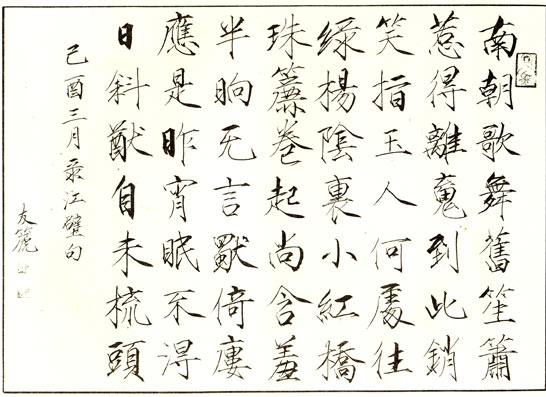 南朝歌舞舊笙簫
惹得離䰟到此銷
笑指玉人何處往
綠楊陰裏小紅橋
珠簾卷起尚含羞
半晌无言獸倚廔
應是昨宵眠不淂
日斜猷自未梳頭
己酉三月彔江璧句
友簏